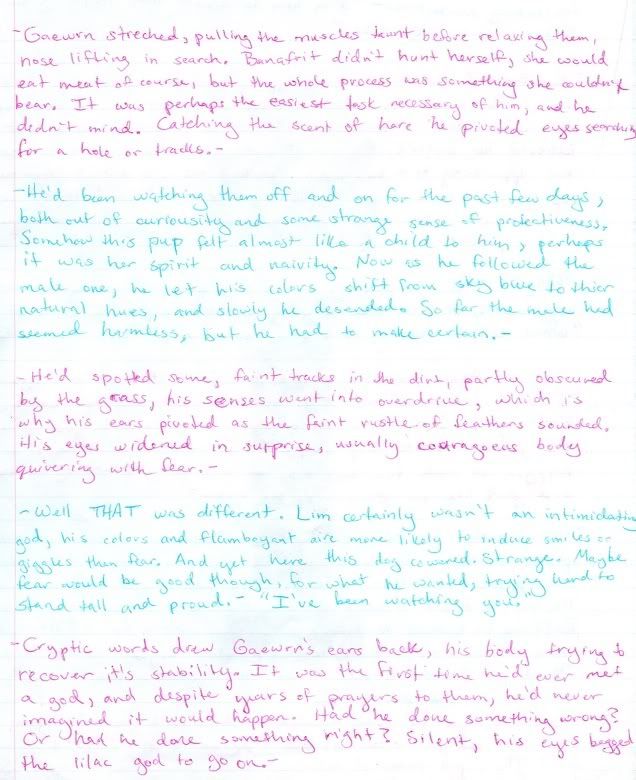 -Gaewrn streched, pulling the muscles taunt before relaxing them,
nose lifting in search. Banafrit didn't hunt herself, she would
eat meat of course, but the whole process was something she couldn't
bear. It was perhaps the easiest task necessary of him, and he
didn't mind. Catching the scent of hare he pivoted eyes searching
for a hole or tracks.-
-He'd been watching them off and on for the past few days,
both out of curiousity and some strange sense of protectiveness.
Somehow this pup felt almost like a child to him, perhaps
it was her spirit and naivity. Now as he followed the
male one, he let his colors shift from sky blue to thier
natural hues, and slowly he desended. So far the male had
seemed harmless, but he had to make certain.-
-He'd spotted some, faint tracks in the dirt, partly obscured
by the grass, his senses went into overdrive, which is
why his ears pivoted as the faint rustle of feathers sounded.
His eyes widened in surprise, usually couragoeus body
quivering with fear.-
-Well THAT was different. Lim certainly wasn't an intimidating
god, his colors and flamboyant aire more likely to induce smiles or
giggles then fear. And yet here this dog cowered. Strange. Maybe
fear would be good though, for what he wanted, trying hard to
stand tall and proud.- "I've been watching you."
-Cryptic words drew Gaewrn's ears back, his body trying to
recover it's stability. It was the first time he'd ever met
a god, and despite years of prayers to them, he'd never
imagined it would happen. Had he done something wrong?
Or had he done something right? Silent, his eyes begged
the lilac god to go on.-